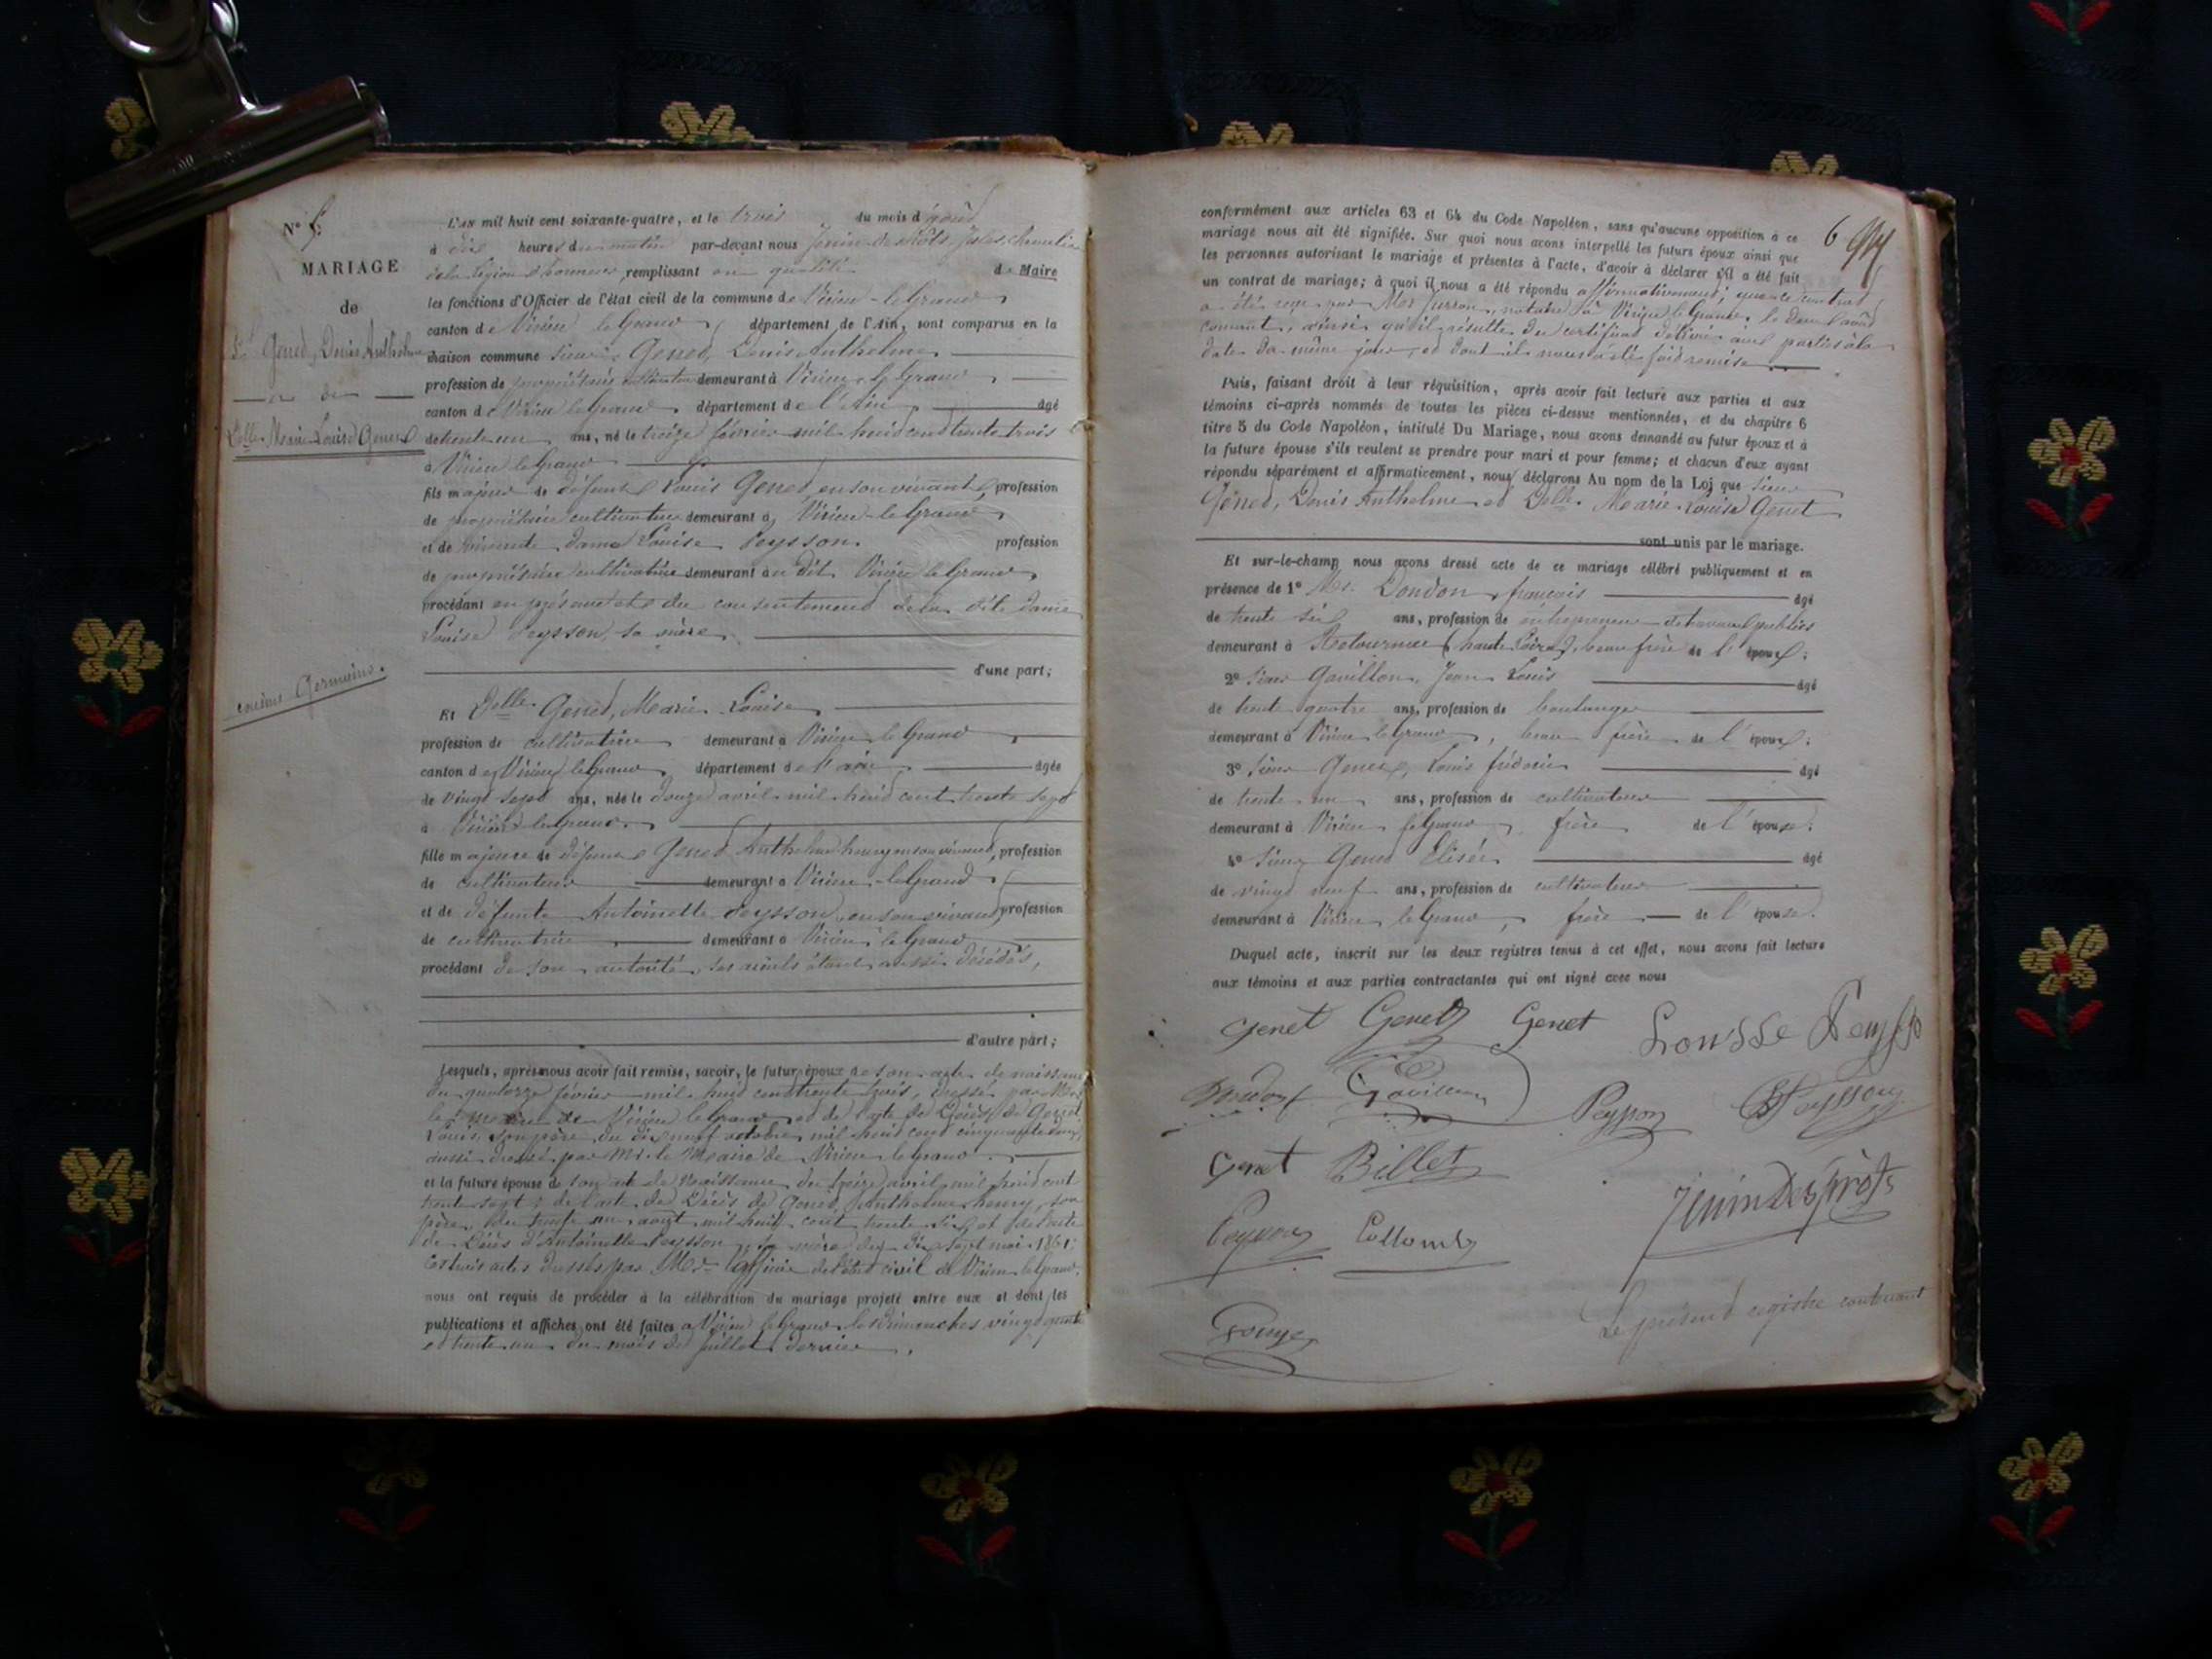 N° 5.
MARIAGE
de
Sr Genet, Denis Anthelme
Delle Marie Louise Genet
cousins Germains.
L'AN mil huit cent soixante-quatre, et le trois du mois d'août
à dix heures du matin par-devant nous Jenin des Prôts, Jules, chevalier
de la Légion d'honneur, remplissant en qualité de Maire
les fonctions d'Officier de l'état civil de la commune de Virieu-le-Grand
canton de Virieu le Grand, département de l'Ain, sont comparus en la
maison commune sieur Genet, Denis Anthelme
profession de propriétaire cultivateur demeurant à Virieu-le-Grand
canton de Virieu le Grand département de l'Ain, âgé
de trente un ans, né le treize février mil huit cent trente trois
à Virieu le Grand
fils majeur de défunt Louis Genet, en son vivant, profession
de propriétaire cultivateur demeurant à Virieu-le-Grand
et de vivante dame Louise Peysson profession
de propriétaire cultivatrice demeurant au dit Virieu le Grand
procédant en présence et du consentement de la dite dame
Louise Peysson, sa mère
d'une part;
Et Delle Genet, Marie Louise
profession de cultivatrice demeurant à Virieu le Grand
canton de Virieu le Grand département de l'ain âgée
de vingt sept ans, née le douze avril mil huit cent trente sept
à Virieu le Grand
fille majeure de défunt Genet, Anthelme henry en son vivant, profession
de cultivateur demeurant à Virieu-le-Grand
et de défunte Antoinette Peysson, en son vivant, profession
de cultivatrice demeurant à Virieu le Grand
procédant de son autorité, ses aïeuls étant aussi décédés,
d'autre part;
Lesquels, après nous avoir fait remise, savoir, le futur époux de son acte de naissance
du quatorze février mil huit cent trente trois, dressé par Mr
le maire de Virieu le Grand et de l'acte de Décès de Genet
Louis, son père, du dix neuf octobre mil huit cent cinquante deux,
aussi dressé par Mr. le Maire de Virieu le Grand.
et la future épouse de son acte de Naissance du treize avril mil huit cent
trente sept; de l'acte de Décès de Genet, Anthelme henry, son
père, du trente un août mil huit cent trente six, et de l'acte
de Décès d'Antoinette Peysson, sa mère, du dix sept mai 1861;
Ces trois actes dressés par Mr l'officier de l'état civil de Virieu le Grand.
nous ont requis de procéder à la célébration du mariage projeté entre eux et dont les
publications et affiches ont été faites à Virieu le Grand les dimanches vingt quatre
et trente un du mois de juillet dernier,
6
conformément aux articles 63 et 64 du Code Napoléon, sans qu'aucune opposition à ce
mariage nous ait été signifiée. Sur quoi nous avons interpellé les futurs époux ainsi que
les personnes autorisant le mariage et présentes à l'acte, d'avoir à déclarer s'il a été fait
un contrat de mariage; à quoi il nous a été répondu affirmativement; que ce contrat
a été reçu par Mtre notaire à Virieu le Grand, le deux août
courant, ainsi qu'il résulte du certificat délivré aux parties à la
date du même jour, et dont il nous a été fait remise.
Puis, faisant droit à leur réquisition, après avoir fait lecture aux parties et aux
témoins ci-après nommés de toutes les pièces ci-dessus mentionnées, et du chapitre 6
titre 5 du Code Napoléon, intitulé Du Mariage, nous avons demandé au futur époux et à
la future épouse s'ils veulent se prendre pour mari et pour femme; et chacun d'eux ayant
répondu séparément et affirmativement, nous déclarons Au nom de la Loi que sieur
Genet, Denis Anthelme et Delle. Marie Louise Genet
sont unis par le mariage.
Et sur-le-champ nous avons dressé acte de ce mariage célébré publiquement et en
présence de 1° Mr. Dondon, françois âgé
de trente six ans, profession de entrepreneur de travaux publics
demeurant à Retournac (haute Loire), beau frère de l'époux;
2° sieur Gavillon, Jean Louis âgé
de trente quatre ans, profession de boulanger
demeurant à Virieu le Grand, beau frère de l'époux;
3° sieur Genet, Louis frédéric âgé
de trente un ans, profession de cultivateur
demeurant à Virieu le Grand, frère de l'épouse.
4° sieur Genet Elisée âgé
de vingt neuf ans, profession de cultivateur
demeurant à Virieu le Grand, frère de l'épouse.
Duquel acte, inscrit sur les deux registres tenus à cet effet, nous avons fait lecture
aux témoins et aux parties contractantes qui ont signé avec nous
Genet Genet Genet Louisse Peysso
Gavillon Peysson Peysson
Genet Billet Jenin Des Prôts
Peysson Collomb
Le présent registre contenant